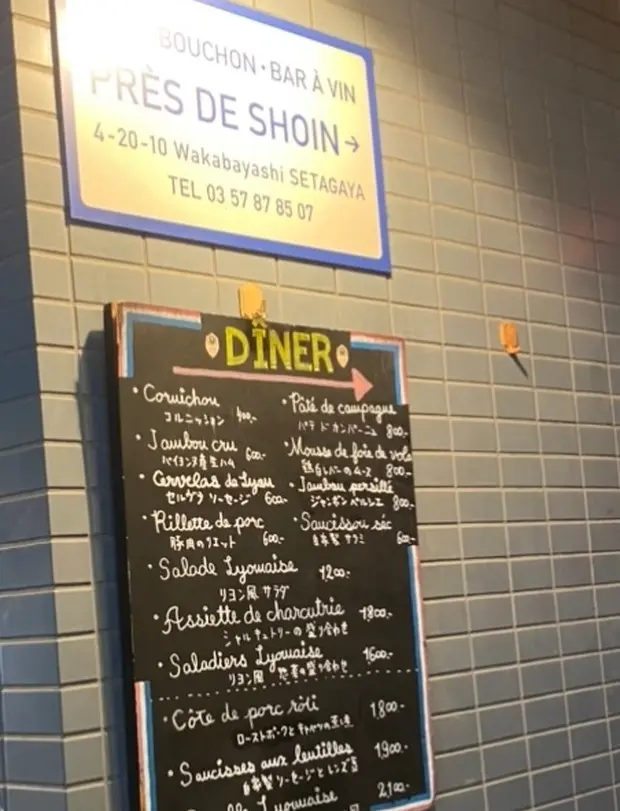 BOUCHON・BAR À VIN
PRÈS DE SHOIN→
4-20-10 Wakabayashi SETAGAYA
TEL 03 57 87 85 07
DÎNER
・Cornichon
コルニッション 400.-
・Jambon cru
バイヨンヌ産生ハム 600.-
・Cervelas de Lyon
セルヴラ ソーセージ 600.-
・Rillette de porc
豚肉のリエット 600.-
・Pâté de campagne
パテ ド カンパーニュ 800.-
・Mousse de foie de vola
鶏白レバーのムース 800.-
・Jambon persillé
ジャンボン ペルシエ 800.-
・Saucisson séc
自家製 サラミ 600.-
・Salade Lyonaise 1200.-
リヨン風 サラダ
・Assiette de charcutrie 1800.-
シャルキュトリーの盛り合わせ
・Saladiers Lyonaise 1600.-
リヨン風 惣菜の盛り合わせ
・Côte de porc rôti 1,800.-
ローストポークとキャベツの
・Saucisses aux lentilles 1,900.-
自家製ソーセージとレンズ豆
Lyonaise 2,100.-